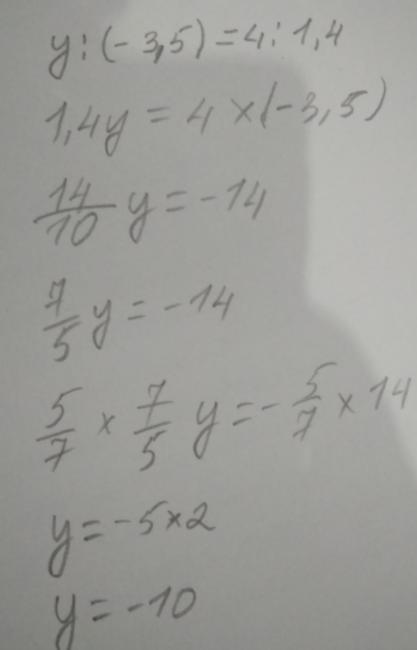 y:(-3,5)=4:1,4
1,4y=4×(-3,5)
14/10 y=-14
7/5 y=-14
5/7 × 7/5 y=-5/7×14
y=-5×2
y=-10